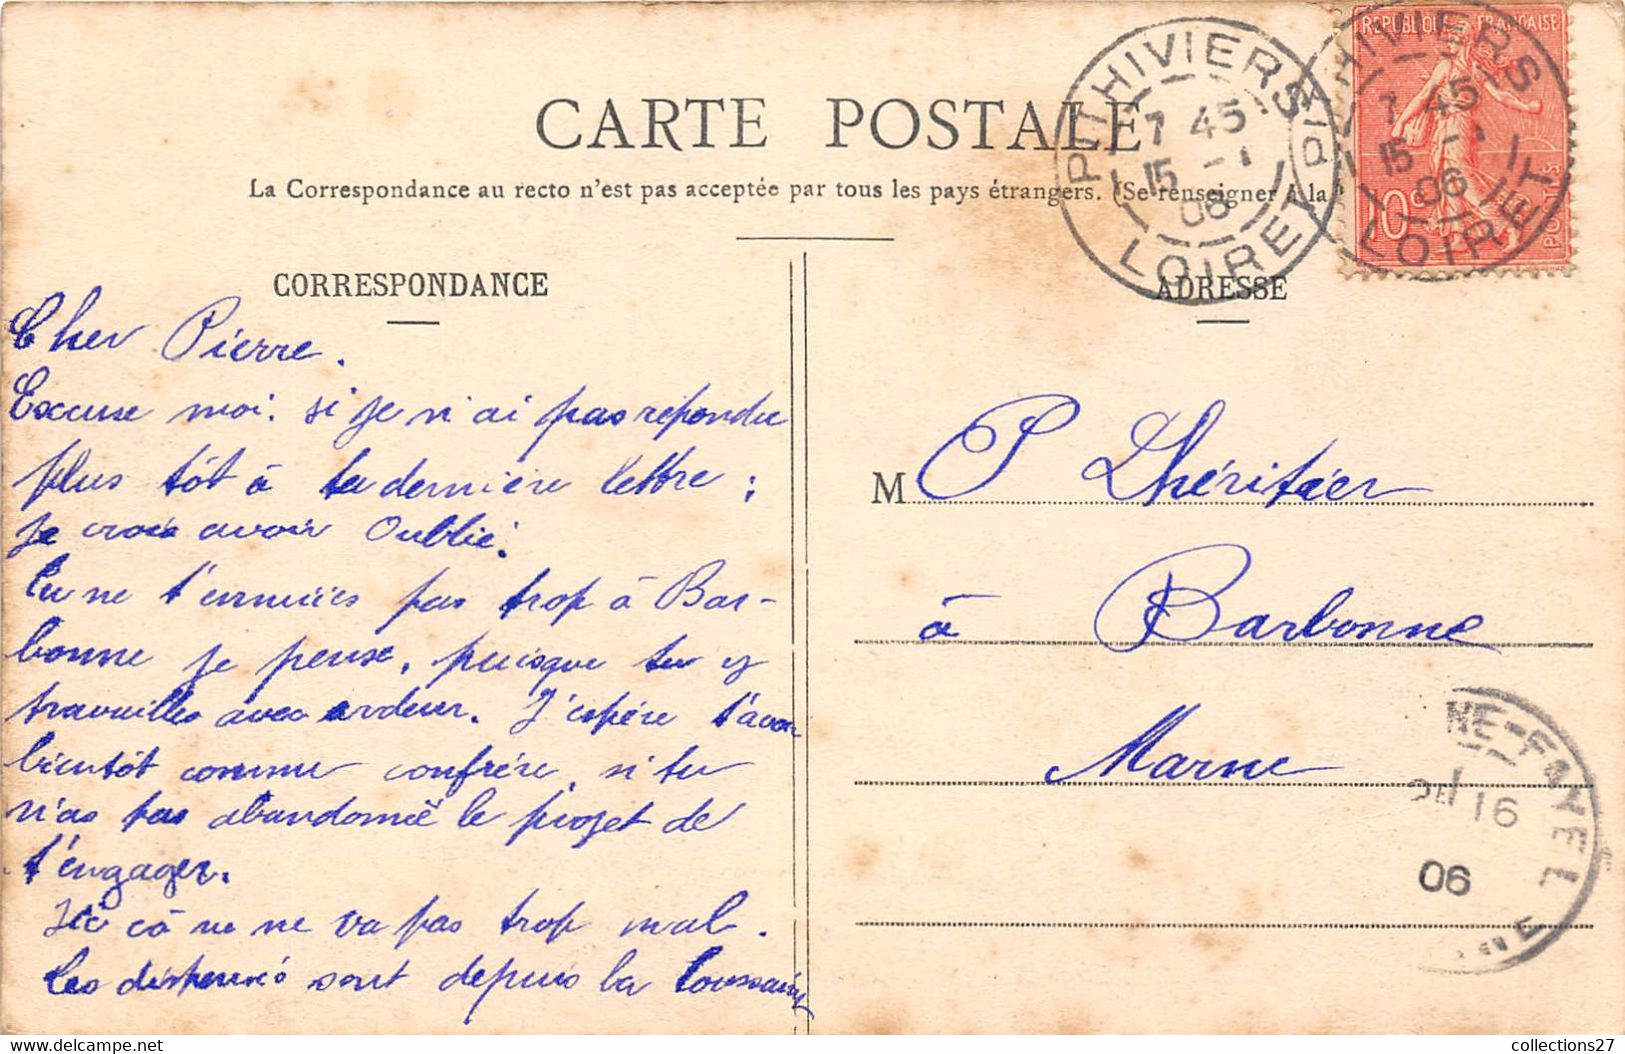 CARTE POSTALE
La Correspondance au recto n'est pas acceptée par tous les pays étrangers. (Se renseigner à la
CORRESPONDANCE
Cher Pierre.
Excuse moi. si je n'ai pas repondu
plus tôt à ta dernière lettre ;
je crois avoir Oublié.
Tu ne t'ennuies pas trop à Bar-
bonne je pense, puisque tu y
travailles avec ardeur. J'espére t'avoir
bientôt comme confrére, si tu
n'as pas abandonné le projet de
t'engager.
Ici cà ne va pas trop mal.
Les dispensés sont depuis la Toussaint
ADRESSE
M P Lhéritier
à Barbonne
Marne
PITHIVIERS
7 45
15 -1
06
LOIRET
PITHIVIERS
7 45
15 -1
06
LOIRET
REPUBLIQUE FRANÇAISE
10c
POSTES
NE-FAYEL
16
06
http://www.delcampe.net
collections27